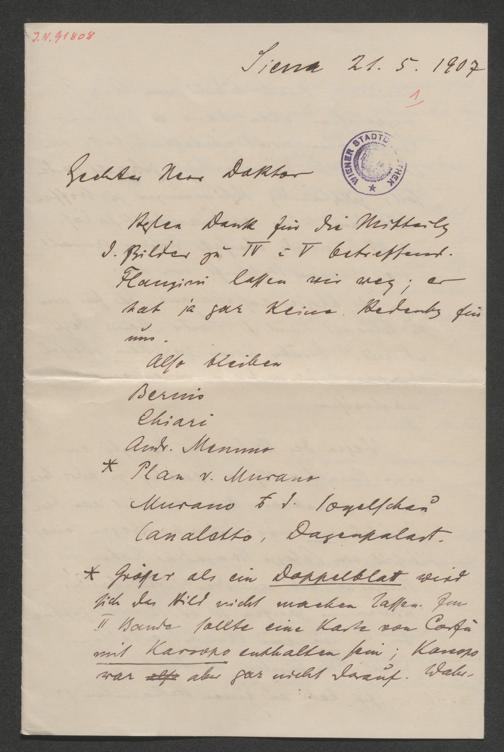 J.N. 91808
Siena 21. 5. 1907
1
WIENER STADTBIBLIOTHEK
Geehrter Herr Doktor
Besten Dank für die Mitteilg
d. Bilder zu IV u V betreffend.
Flangini lassen wir weg; er
hat ja gar keine Bedeutg für
uns.
Also bleiben
Bernis
Chiari
Andr. Memmo
* Plan v. Murano
Murano d. Vogelschau
Canaletto, Dogenpalast.
* Größer als ein Doppelblatt wird
sich das Bild nicht machen lassen. Im
II Bande sollte eine Karte von Corfu
mit Kassopo enthalten sein; Kassopo
war also aber gar nicht darauf. Wahr-